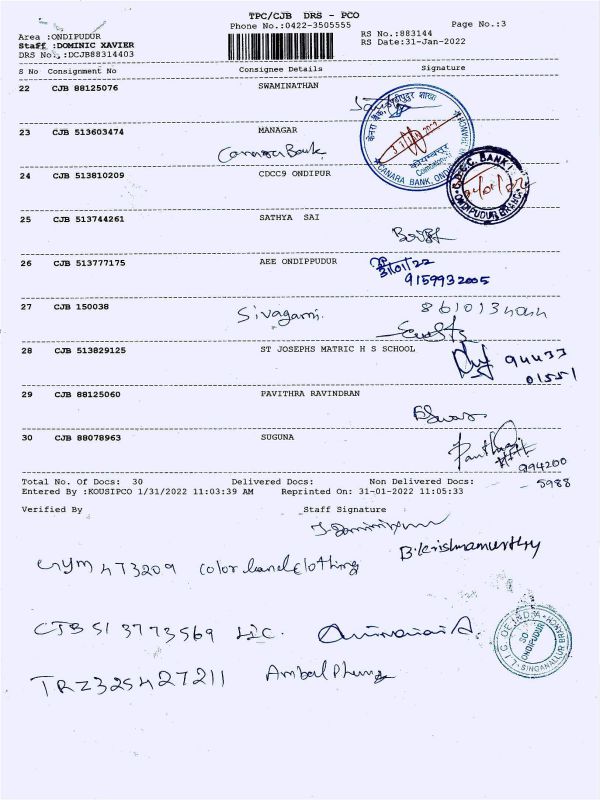 TPC/CJB DRS - PCO
Phone No.:0422-3505555
Page No.:3
Area :ONDIPUDUR
Staff :DOMINIC XAVIER
DRS No.:DCJB88314403
RS No.:883144
RS Date:31-Jan-2022
S No Consignment No Consignee Details Signature
22 CJB 88125076 SWAMINATHAN
23 CJB 513603474 MANAGAR
Canara Bank
केनरा बैंक
CANARA BANK, ONDIPUDUR BRANCH
24 CJB 513810209 CDCC9 ONDIPUR
BANK
ONDIPUDUR BRANCH
25 CJB 513744261 SATHYA SAI
26 CJB 513777175 AEE ONDIPPUDUR
31/01/22
9159932005
27 CJB 150038 Sivagami.
28 CJB 513829125 ST JOSEPHS MATRIC H S SCHOOL
94433
01551
29 CJB 88125060 PAVITHRA RAVINDRAN
30 CJB 88078963 SUGUNA
994200
5988
Total No. Of Docs: 30 Delivered Docs: Non Delivered Docs:
Entered By :KOUSIPCO 1/31/2022 11:03:39 AM Reprinted On: 31-01-2022 11:05:33
Verified By Staff Signature
B.Krishnamurthy
473209 Color land Clothing
CJB 513773569 LIC.
L.I.C. OF INDIA
SO
ONDIPUDUR
SINGANALLUR BRANCH
TRZ325427211 Ambal